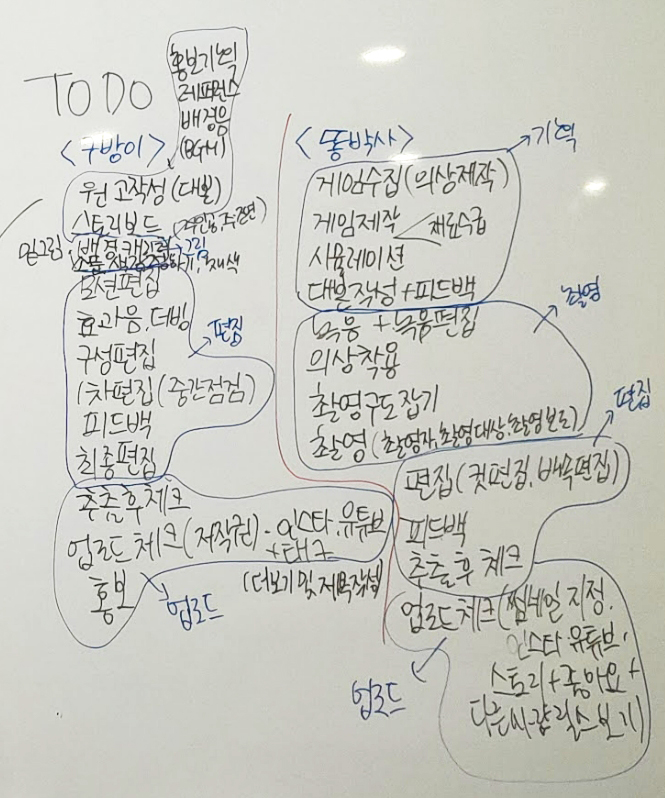 TO DO
홍보기획
레퍼런스
배경음
(BGM)
<구방이>
원고작성 (대본)
스토리보드 (주인공, 주장면)
밑그림
모션편집
효과음, 더빙
구성편집
1차편집 (중간점검)
피드백
최종편집
편집
추출 후 체크
업로드 체크 (저작권) - 인스타 유튜브
+ 태그
홍보
(더보기 및 제목작성)
업로드
<똥박사>
기획
게임수집 (의상제작)
게임제작
재료수급
시뮬레이션
대본작성 + 피드백
촬영
녹음 + 녹음편집
의상착용
촬영구도잡기
촬영 (촬영자, 촬영대상, 촬영보조)
편집
편집 (컷편집, 배속편집)
피드백
추출 후 체크
업로드체크 (썸네일 지정,
인스타 유튜브,
스토리 + 좋아요 +
다른사람 릴스보기)
업로드